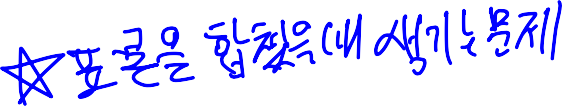 ☆표 콜을 합쳤을 때 생기는 문제